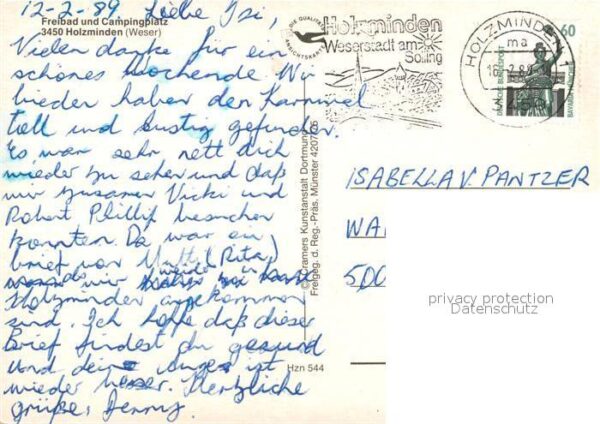 12-2-89 Liebe Isi,
Freibad und Campingplatz
3450 Holzminden (Weser)
Vielen danke für ein
schönes Wochende Wir
beider haben den Karnival
toll und lustig gefunden.
Es war sehr nett dich
wieder zu sehen und daß
wir zusamen Vicki und
Robert Phillip besuchen
konnten. Da war ein
brief von Mutti (Rita)
wir wieder in
Holzminden angekommen
sind. Ich hoffe daß dieser
Brief findest du gesund
und deine Auge ist
wieder besser. Herzliche
grüße, Jenny.
DIE QUALITÄTS
ANSICHTSKARTE
© Cramers Kunstanstalt Dortmund
Freigeg. d. Reg.-Präs. Münster 4207/75
Hzn 544
Holzminden
Weserstadt am
Solling
HOLZMINDEN 1
ma
3450
60
DEUTSCHE BUNDESPOST
BAVARIA MÜNCHEN
ISABELLA V. PANTZER
WA
500
privacy protection
Datenschutz